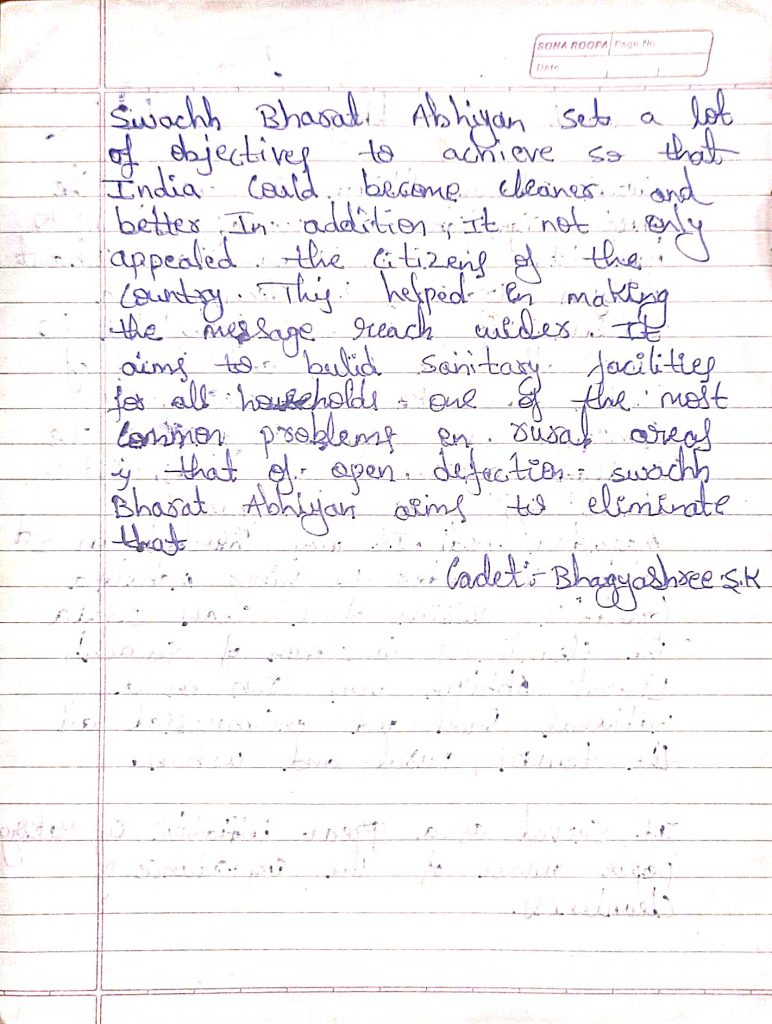 SONA ROOPA Page No.
Date
Swachh Bharat. Abhiyan set a lot
of objectives to achieve so that
India Could become cleaner. and
better. In addition, It not only
appealed the Citizens of the
Country. This helped in making
the message reach wider. It
aims to bulid Sanitary facilities
for all households. one of the most
Common problems in rural areas
is that of open defection. swachh
Bharat Abhiyan aims to eliminate
that
Cadet:- Bhagyashree.S.K